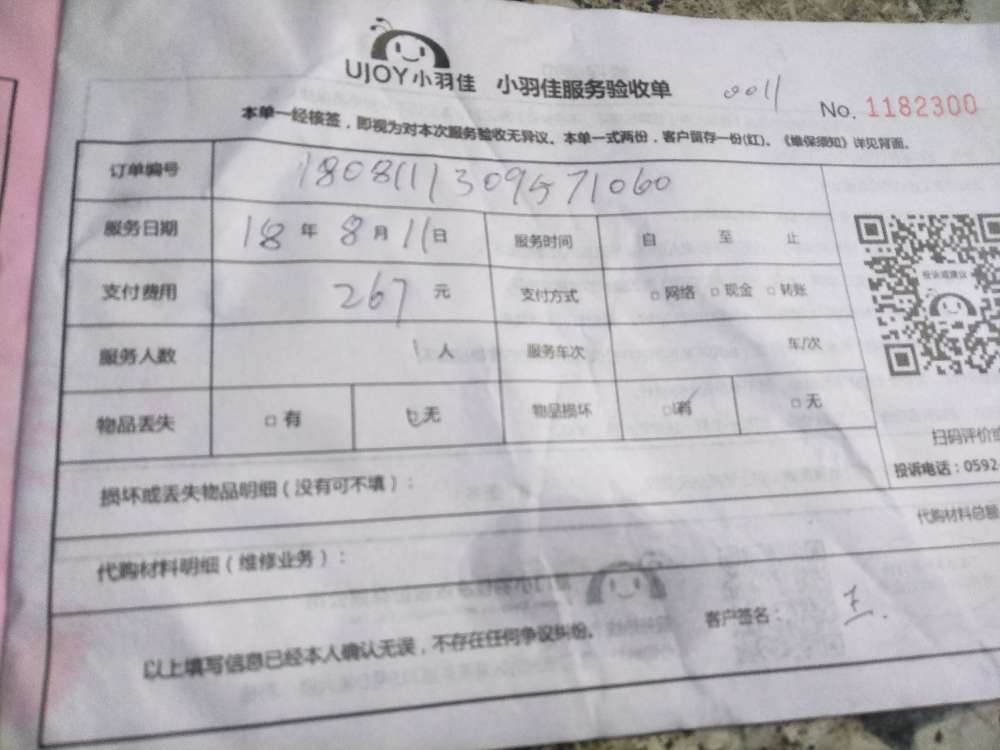 UJOY小羽佳 小羽佳服务验收单 0011 No. 1182300
本单一经核签，即视为对本次服务验收无异议。本单一式两份，客户留存一份(红)。《维保须知》详见背面。
订单编号 1808111309571060
服务日期 18 年 8 月 11 日 服务时间 自 至 止
支付费用 267 元 支付方式 □网络 □现金 □转账
投诉或建议
服务人数 1 人 服务车次 车/次
物品丢失 □有 □无 物品损坏 □有 □无
扫码评价或
投诉电话：0592-
损坏或丢失物品明细（没有可不填）：
代购材料总额
代购材料明细（维修业务）：
以上填写信息已经本人确认无误，不存在任何争议纠纷。 客户签名：